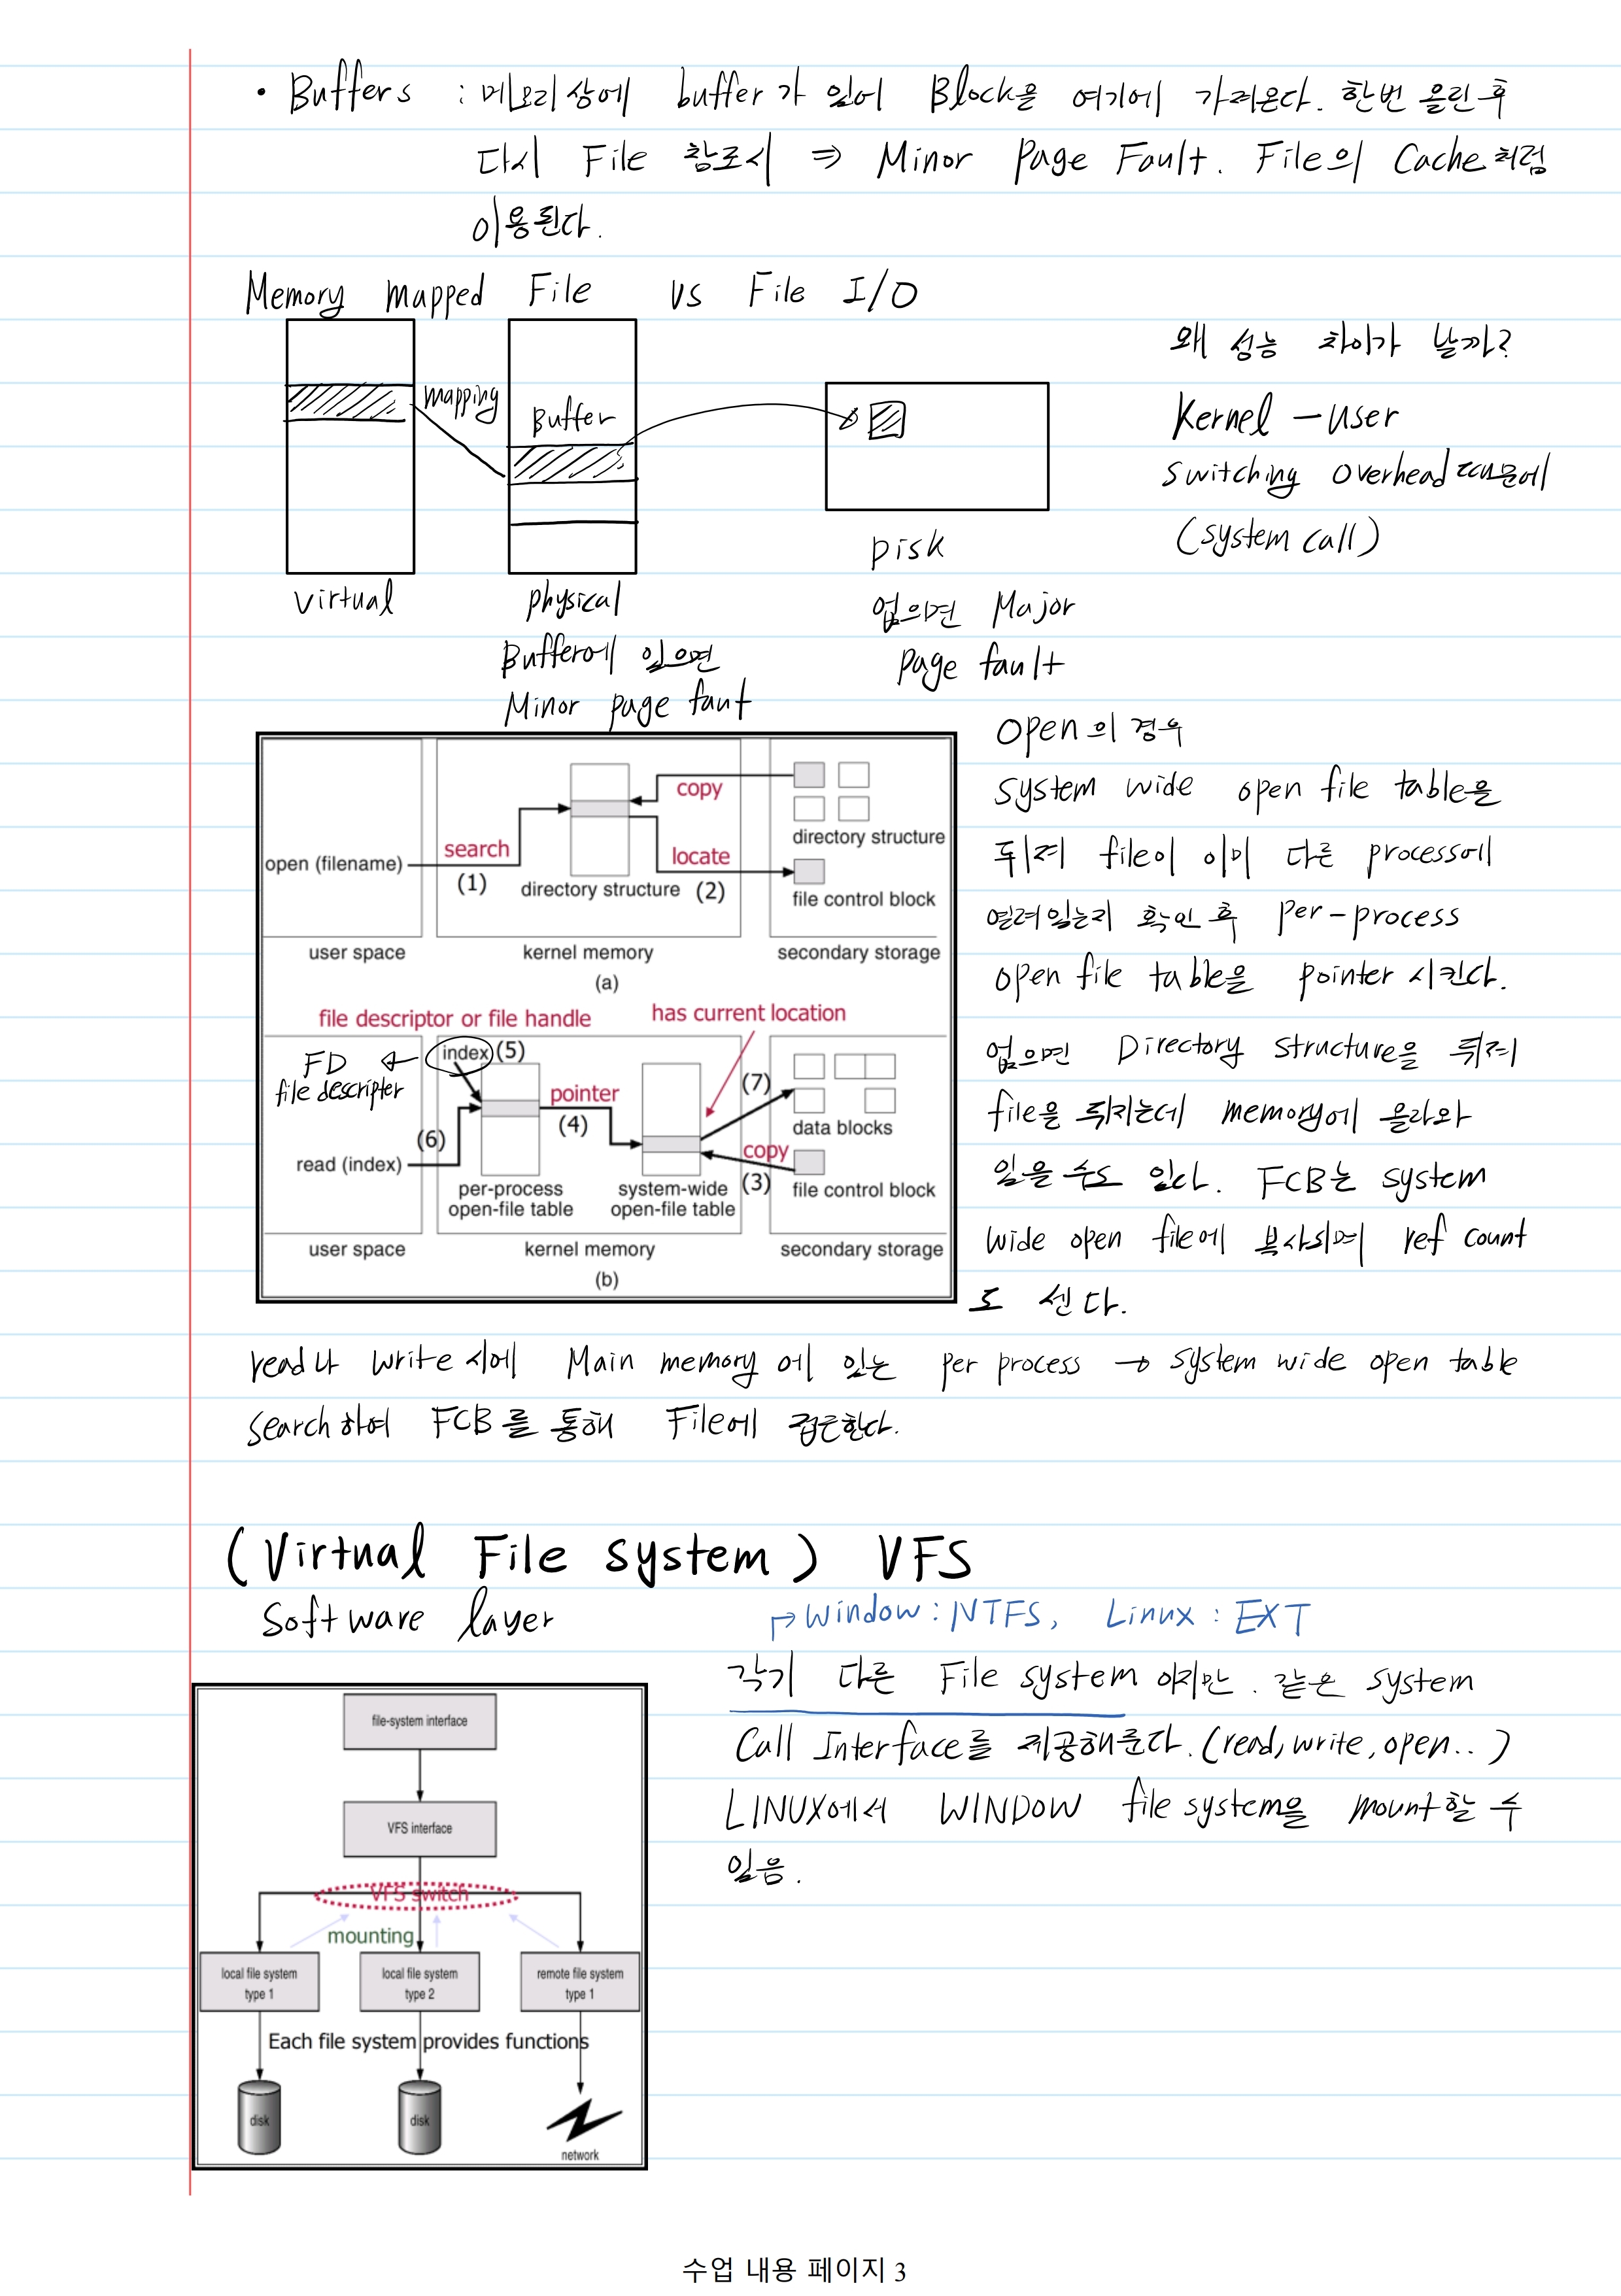 • Buffers : 메모리상에 buffer가 있어 Block을 여기에 가져온다. 한번 올린 후
다시 File 참조시 ⇒ Minor Page Fault. File의 Cache처럼
이용된다.
Memory mapped File vs File I/O
mapping
Buffer
Virtual
physical
Disk
Buffer에 있으면
Minor page faut
없으면 Major
page fault
왜 성능 차이가 날까?
Kernel - user
switching overhead 때문에
(system call)
open (filename)
search
(1)
directory structure
copy
locate
(2)
directory structure
file control block
user space
kernel memory
secondary storage
(a)
file descriptor or file handle
has current location
FD ←
file descripter
index (5)
pointer
(4)
(6)
read (index)
(7)
data blocks
copy
(3)
file control block
per-process
open-file table
system-wide
open-file table
user space
kernel memory
secondary storage
(b)
open의 경우
system wide open file table을
뒤져 file이 이미 다른 process에
열려있는지 확인 후 per-process
open file table을 pointer 시킨다.
없으면 Directory structure을 뒤져
file을 뒤지는데 memory에 올라와
있을 수도 있다. FCB는 system
wide open file에 복사되며 ref count
도 센다.
read나 write시에 Main memory에 있는 per process → system wide open table
search하여 FCB를 통해 File에 접근한다.
(Virtual File system) VFS
Software layer
↱ window : NTFS, Linux : EXT
각기 다른 File system 이지만. 같은 system
Call Interface를 제공해준다. (read, write, open..)
LINUX에서 WINDOW file system을 mount할 수
있음.
file-system interface
VFS interface
VFS switch
mounting
local file system
type 1
local file system
type 2
remote file system
type 1
Each file system provides functions
disk
disk
network
수업 내용 페이지 3